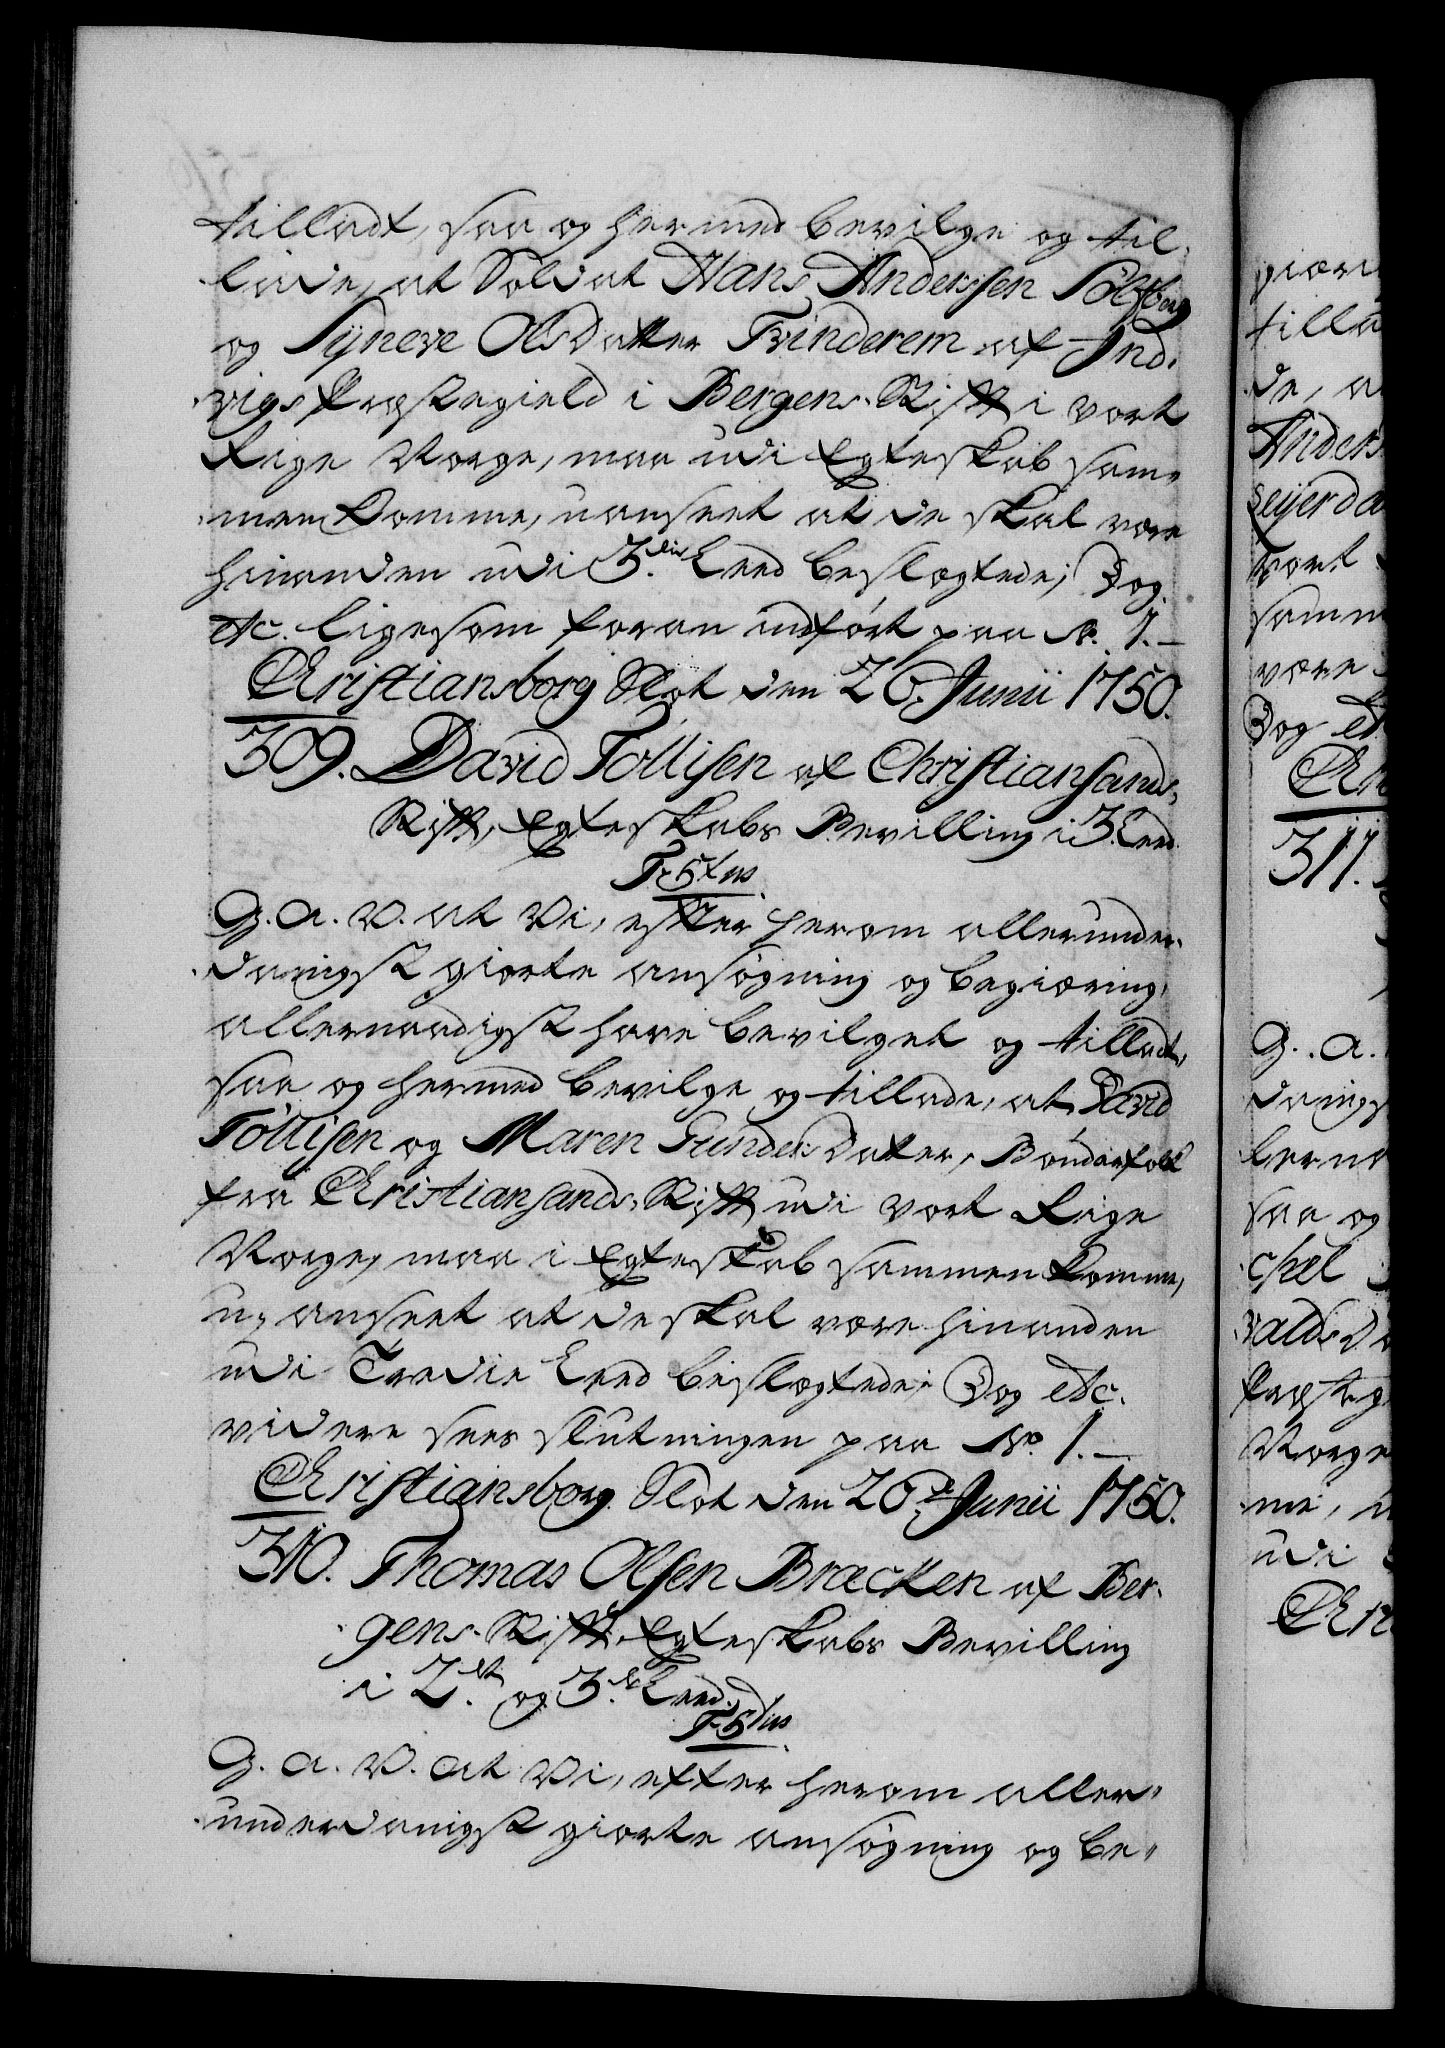 tilladt, saa og hermed bevilge og til-
lade, at Soldat Hans Anderssen Sölfberg
og Syneve Olsdatter Tvinderem af Ind-
vigs Præstegield i Bergens-Stift i vort
Rige Norge, maa udi Egteskab sam-
men komme, uanseet at de skal være
hinanden udi 3die Leed beslægtede; Dog
etc. ligesom foran indført paa No. 1.
Christiansborg Slot den 26. Junii 1750.
309. David Tollisen af Christiansands-
Stift, Egteskabs Bevilling i 3. Leed.
F: 5tus
G. A. V. at Vi, efter herom allerunder-
danigst giorte ansøgning og begiæring,
allernaadigst have bevilget og tilladt,
saa og hermed bevilge og tillade, at David
Tollisen og Maren Gunders Datter, Bønderfolk
fra Christiansands-Stift udi vort Rige
Norge, maa i Egteskab sammen komme,
u-anseet at de skal være hinanden
udi Tredie Leed beslægtede; Dog etc.
videre sees slutningen paa No. 1.
Christiansborg Slot den 26de Junii 1750.
310. Thomas Olsen Bræcken af Ber-
gens-Stift Egteskabs Bevilling
i 2det og 3die Leed.
F: 5tus
G. A. V. at Vi, efter herom aller-
underdanigst giorte ansøgning og be-
giæri
tilla
de, a
Anders
Seyerda
vort
samm
være
Dog et
Chr
311.
G. A.
danigs
lerna
saa og
chel
valds D
Præstg
Norge
me, u
udi
Chr